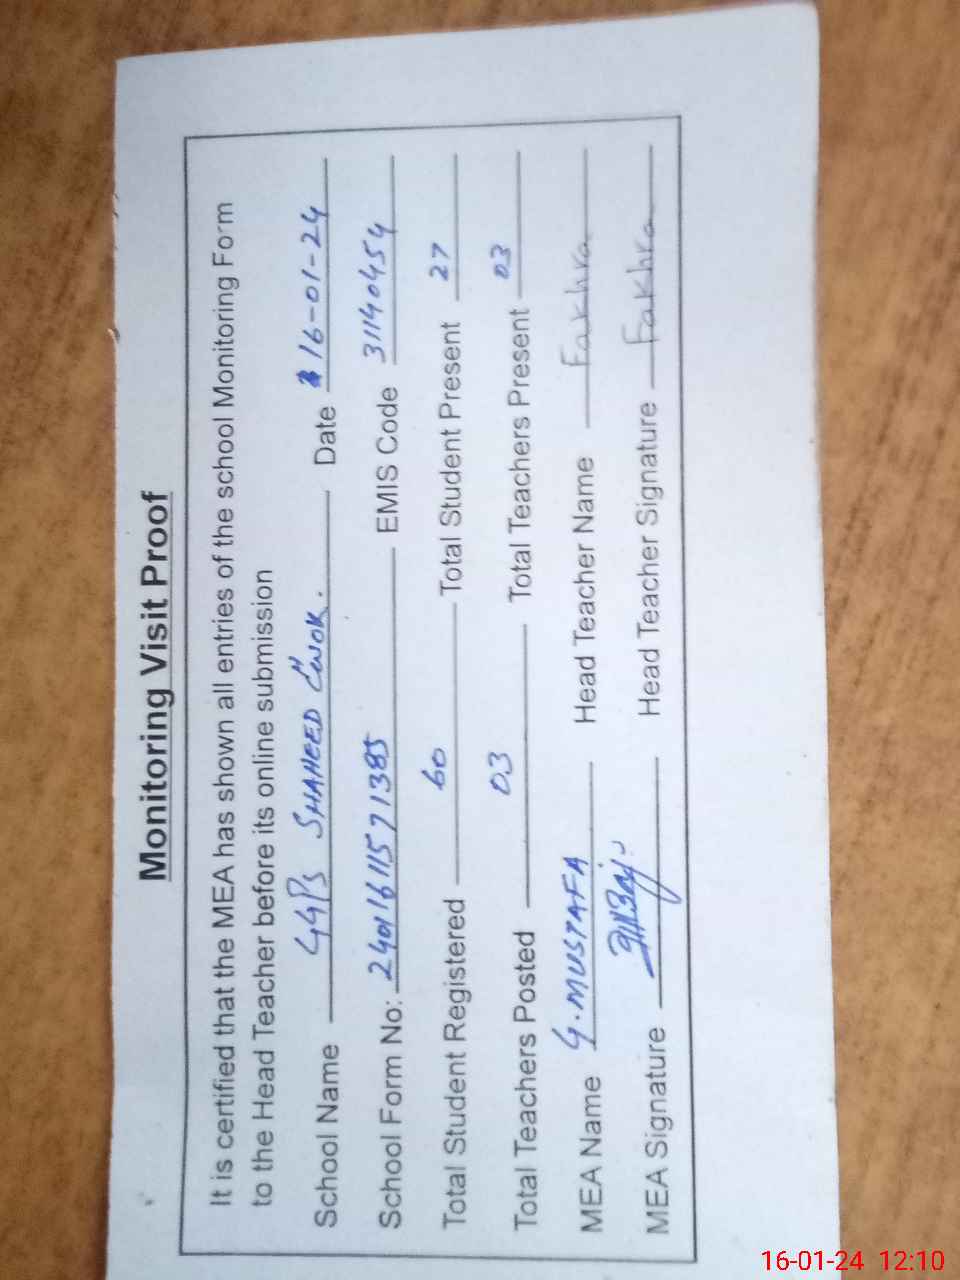 Monitoring Visit Proof
It is certified that the MEA has shown all entries of the school Monitoring Form
to the Head Teacher before its online submission
School Name GGPS SHAHEED Date 16-01-24
School Form No: 2401611571385 EMIS Code 31140454
Total Student Registered 60 Total Student Present 27
Total Teachers Posted 03 Total Teachers Present 03
MEA Name G. MUSTAFA Head Teacher Name Fakhra
MEA Signature Head Teacher Signature Fakhra
16-01-24 12:10